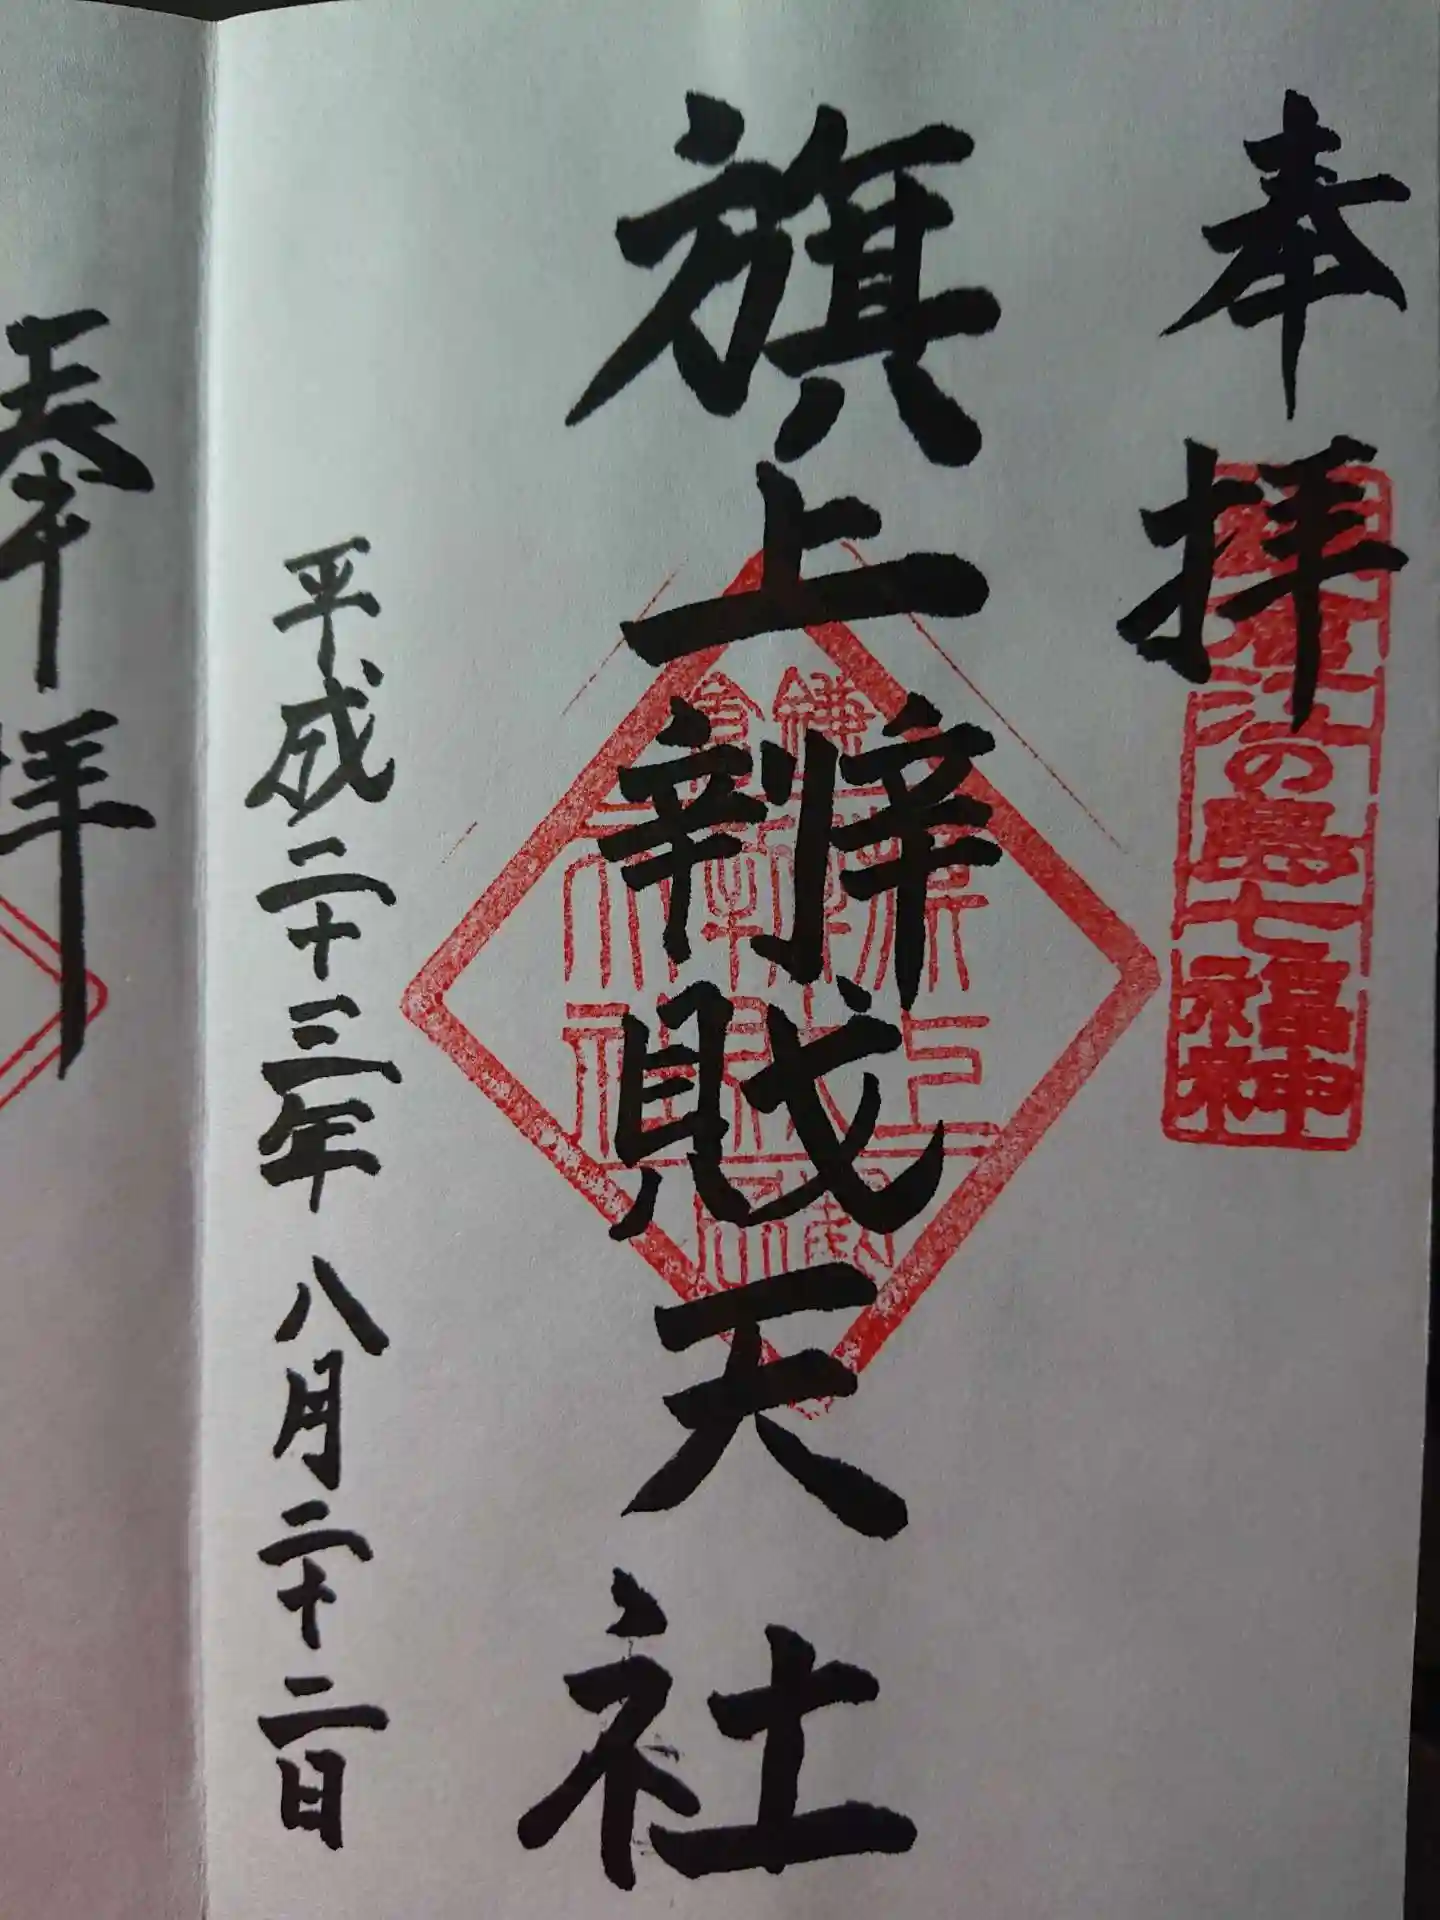 奉拝
鎌倉江の島七福神
旗上辨賎天社
平成二十三年八月二十二日
奉拝